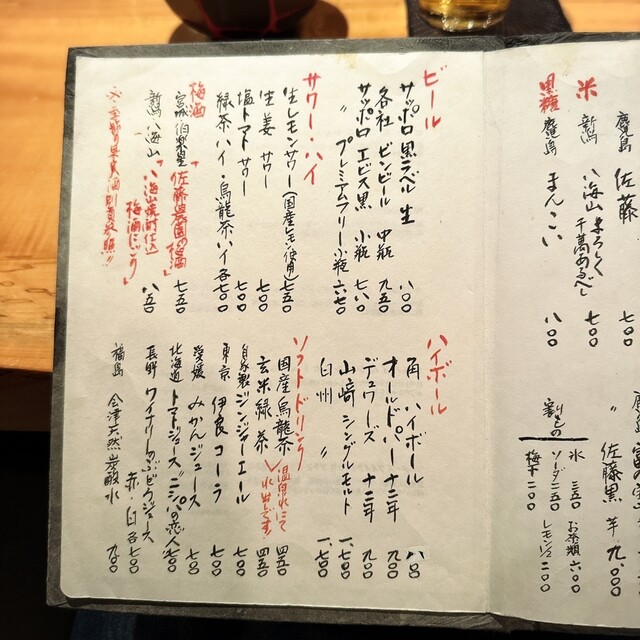 鹿児島 佐藤 七〇〇
米
新潟 八海山 よろしく千萬あるべし 七〇〇
黒糖
鹿児島 まんこい 八〇〇
〃 佐藤黒 半 九、〇〇〇
割りもの
氷 三五〇 お茶類 六〇〇
ソーダ 二五〇
梅干 二〇〇 レモン1/2 二〇〇
ビール
サッポロ黒ラベル 生 八〇〇
各社 ビンビール 中瓶 九五〇
サッポロ エビス黒 小瓶 七八〇
〃 プレミアムフリー 小瓶 六七〇
サワー・ハイ
生レモンサワー(国産レモン使用) 七五〇
生姜 サワー 七〇〇
塩トマト サワー 七〇〇
緑茶ハイ・烏龍茶ハイ 各七〇〇
梅酒
宮城 伯楽星「佐藤農園の梅酒」 七五〇
新潟 八海山「八海山焼酎仕込 梅酒にごり」 八五〇
ハイボール
角 ハイボール 八〇〇
オールドパー 十二年 九〇〇
デュワーズ 十二年 九〇〇
山﨑 シングルモルト 一、七〇〇
白州 〃 一、七〇〇
ソフトドリンク
国産烏龍茶 四五〇
玄米緑茶 四五〇
温泉水にて水出しです!
自家製ジンジャーエール 七〇〇
東京 伊良コーラ 七〇〇
愛媛 みかんジュース 七〇〇
北海道 トマトジュース"ニシパの恋人" 七〇〇
長野 ワイナリーのぶどうジュース 赤・白 各七〇〇
福島 会津天然炭酸水 九〇〇